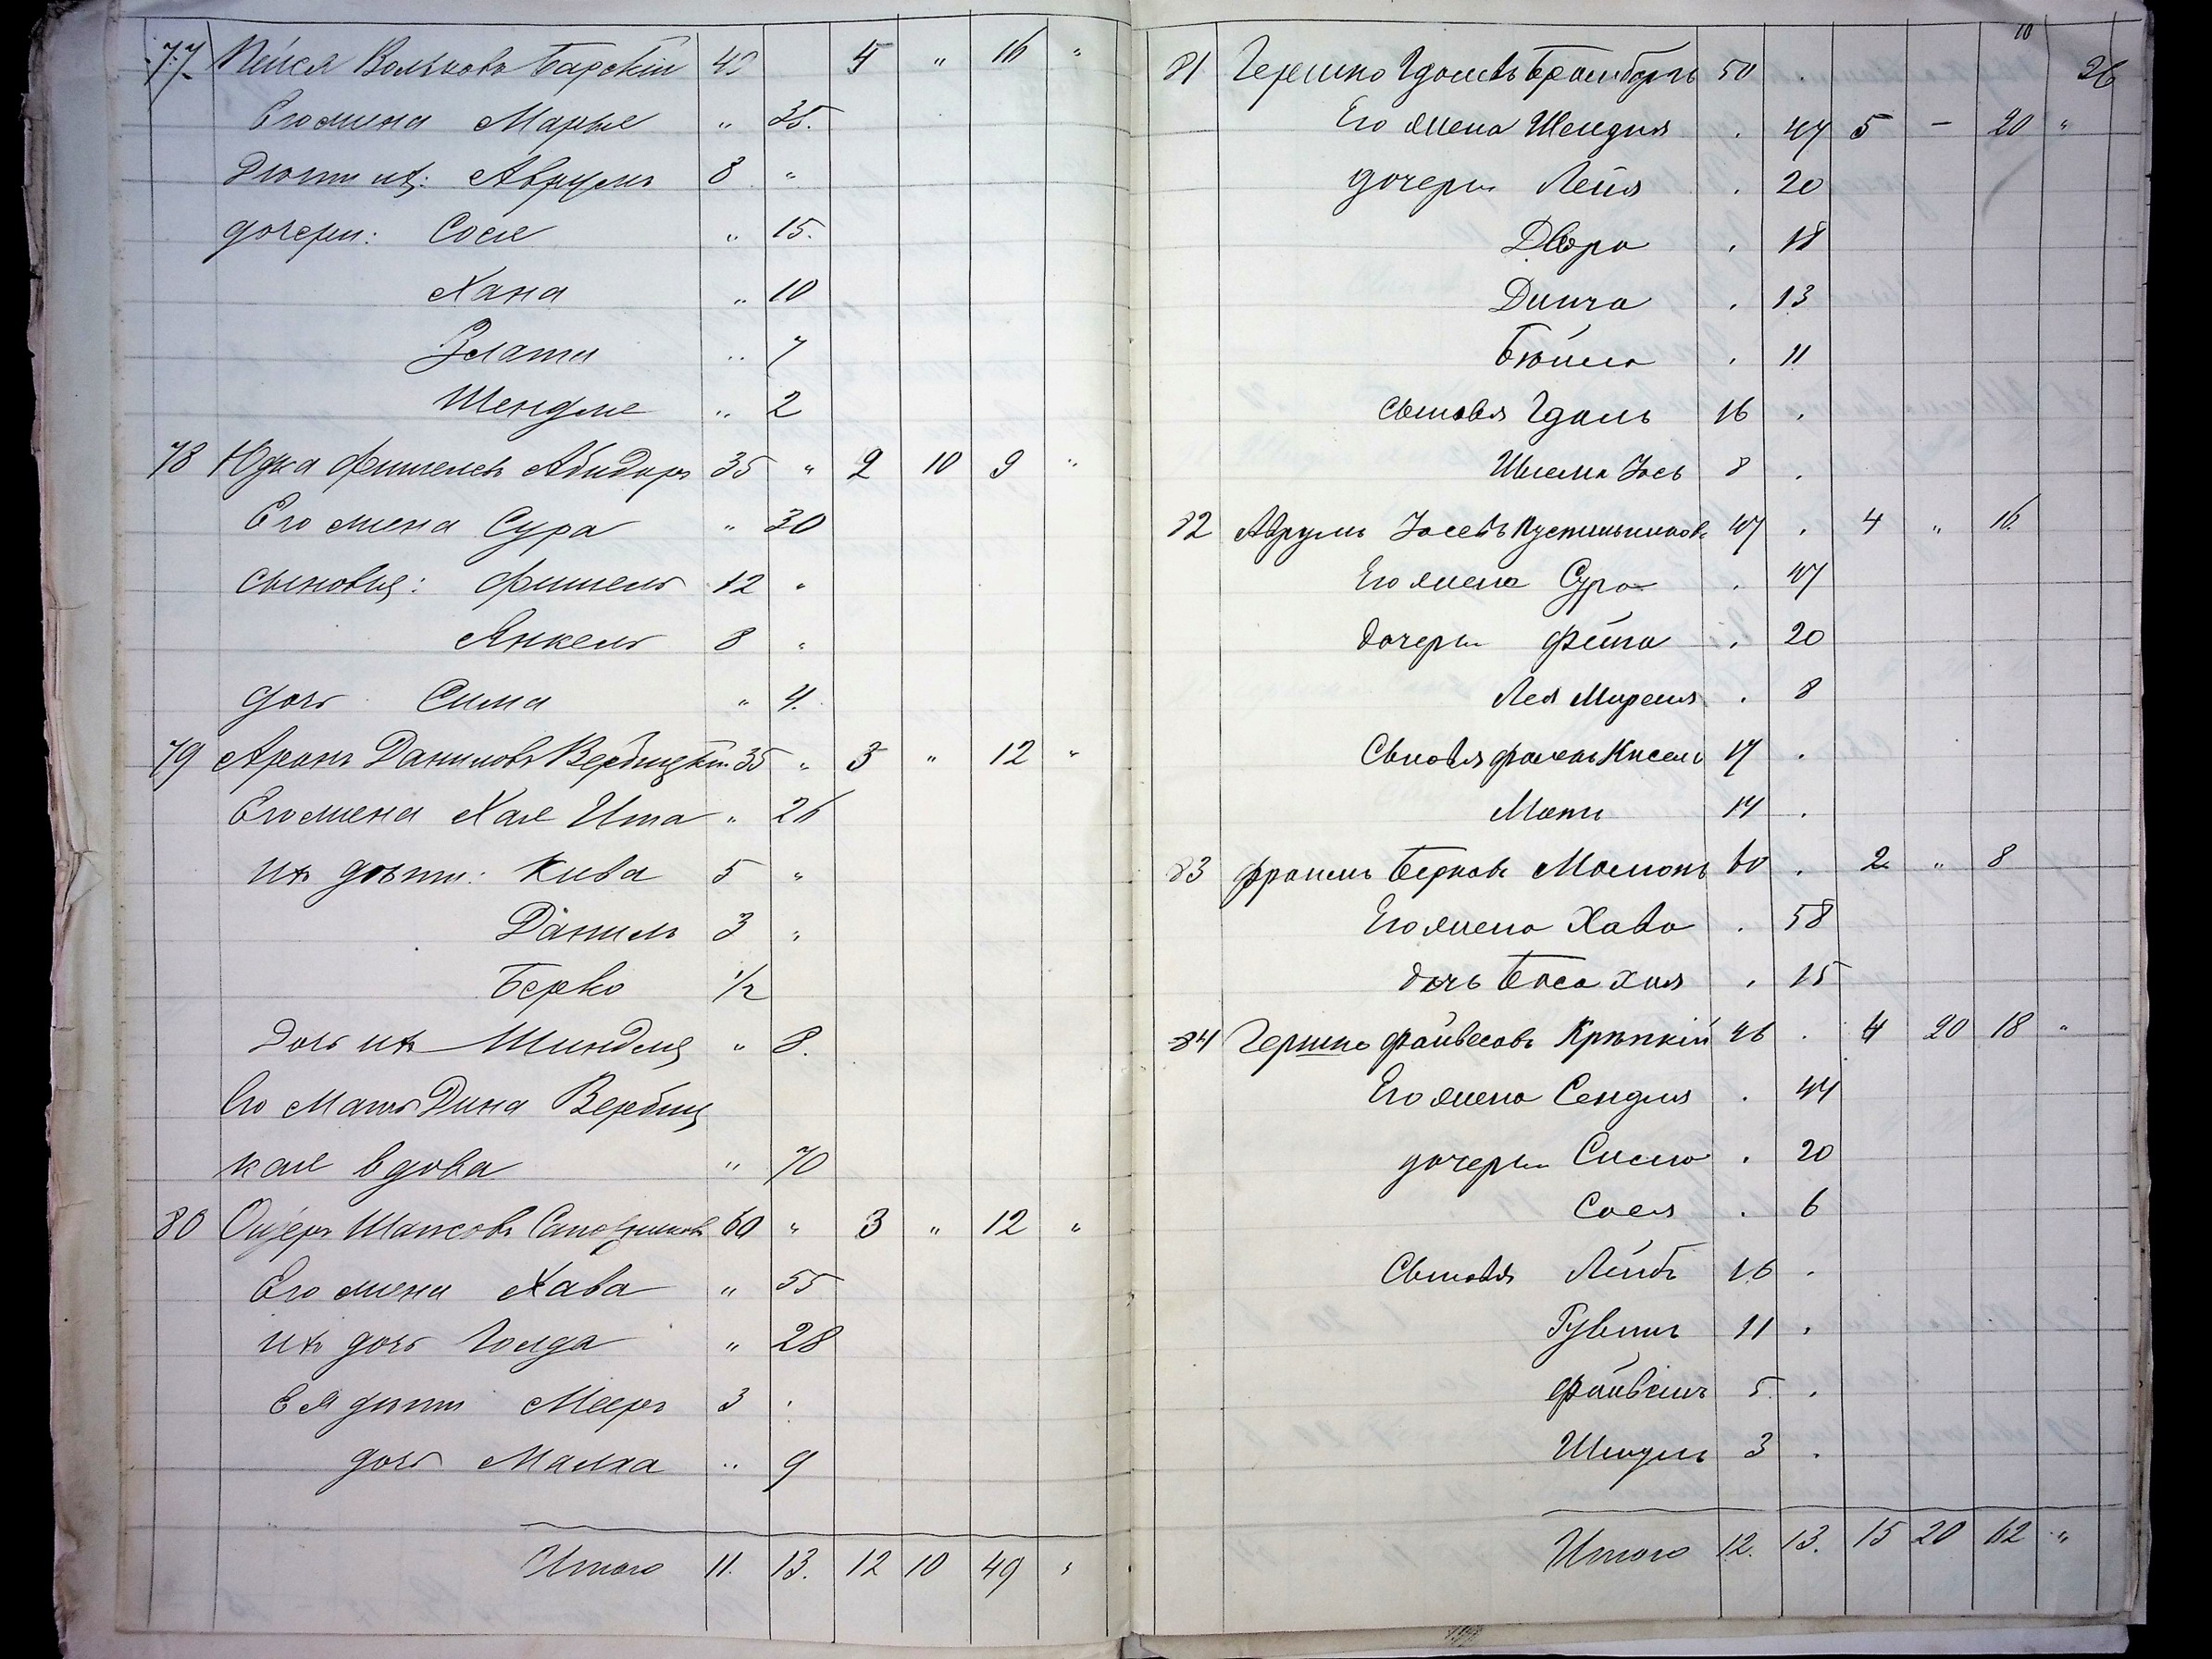 77 Пейся Вольковъ Барскій 42 4 „ 16 „
Его жена Марья „ 35.
Дѣти ихъ: Аврумъ 8 „
дочери: Сося „ 15.
Хана „ 10
Злата „ 7
Шендля „ 2
78 Юдка Фишелевъ Абидоръ 35 „ 2 10 9 „
Его жена Сура „ 30
сыновья: Фишель 12 „
Янкель 8 „
дочь Сима „ 4.
79 Аронъ Даниловъ Вербицкій 35 „ 3 „ 12 „
Его жена Хая Ита „ 26
ихъ дѣти: Кива 5 „
Даниль 3 „
Берко 1/2
Дочь ихъ Шиндля „ 8.
Его мать Дина Вербиц
кая вдова „ 70
80 Ойзеръ Шапсовъ Сапожниковъ 60 „ 3 „ 12 „
Его жена Хава „ 55
ихъ дочь Голда „ 28
Ея дѣти Мееръ 3 „
дочь Малка „ 9
Итого 11. 13. 12 10 49 „
10
26
81 Гершко Гдалевъ 50 .
Его жена Шендля . 47 5 – 20 „
дочери Лейя . 20
Двора . 18
Динча . 13
Бейла . 11
Сыновья Гдаль 16 .
Шлема Іось 8 .
82 Аврумъ Іосевъ Пустыльниковъ 47 . 4 „ 16.
Его жена Сура . 47
дочери Фейга . 20
Лея Мирля . 8
Сыновья Кисель 17 .
Моти 14 .
83 Фроимъ Берковъ 60 . 2 „ 8
Его жена Хава . 58
дочь Бася Хая . 15
84 Гершко Файвесовъ Крѣпкій 46 . 4 20 18 „
Его жена Сендля . 44
дочери Сисля . 20
Сося . 6
Сыновья Лейбъ 16 .
Рувинъ 11 .
Файвишъ 5. .
Шмуль 3 .
Итого 12. 13. 15 20 62 „